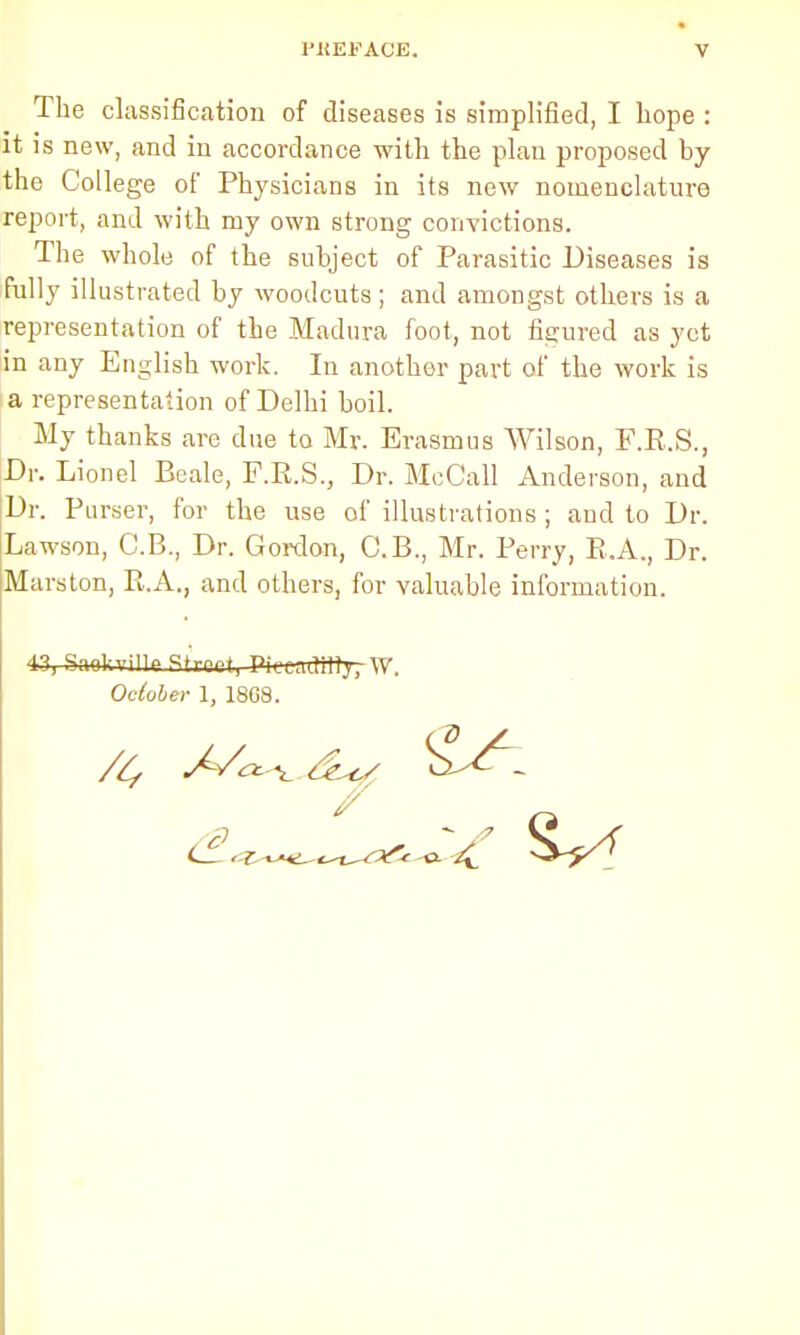 PREFACE. V
The classification of diseases is simplified, I hope :
it is new, and in accordance with the plan proposed by
the College of Physicians in its new nomenclature
report, and with my own strong convictions.
The whole of the subject of Parasitic Diseases is
fully illustrated by woodcuts; and amongst others is a
representation of the Madura foot, not figured as yet
in any English work. In another part of the work is
a representation of Delhi boil.
My thanks are due to Mr. Erasmus Wilson, F.R.S.,
Dr. Lionel Beale, F.R.S., Dr. McCall Anderson, and
Dr. Purser, for the use of illustrations; and to Dr.
Lawson, C.B., Dr. Gordon, C.B., Mr. Perry, R.A., Dr.
Marston, R.A., and others, for valuable information.
43, Sackville Street, Piccadilly, W.
October 1, 1868.
14 St.
Sq